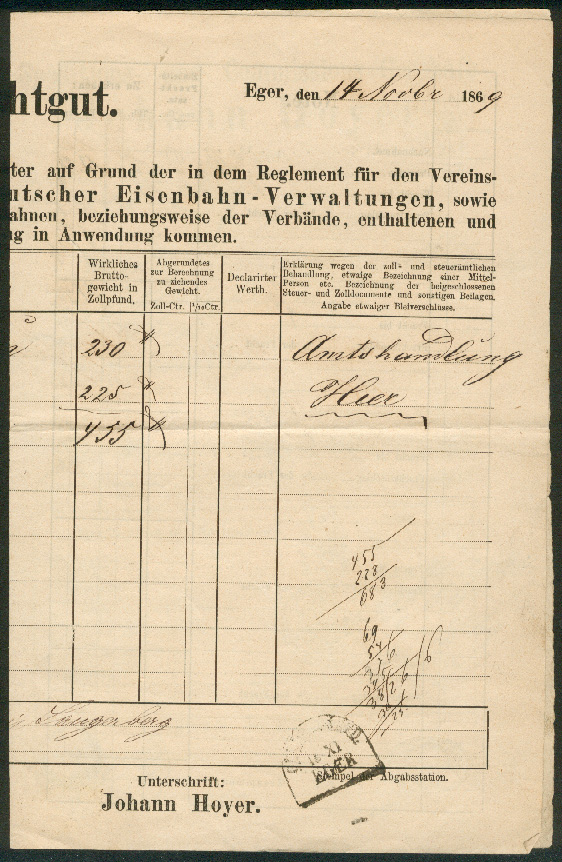 htgut.
Eger, den 14 Novbr 1869
ter auf Grund der in dem Reglement für den Vereins-
utscher Eisenbahn-Verwaltungen, sowie
ahnen, beziehungsweise der Verbände, enthaltenen und
g in Anwendung kommen.
Wirkliches Brutto- gewicht in Zollpfund.
Abgerundetes zur Berechnung zu ziehendes Gewicht.
Zoll-Ctr. 1/10 Ctr.
Declarirter Werth.
Erklärung wegen der zoll- und steuerämtlichen
Behandlung, etwaige Bezeichnung einer Mittel-
Person etc. Bezeichnung der beigeschlossenen
Steuer- und Zolldocumente und sonstigen Beilagen.
Angabe etwaiger Bleiverschlusse.
230 Amtshandlung
225 Hier
455
455
228
683
69
Langenberg
XI
EGER
Stempel der Abgabsstation.
Unterschrift:
Johann Hoyer.